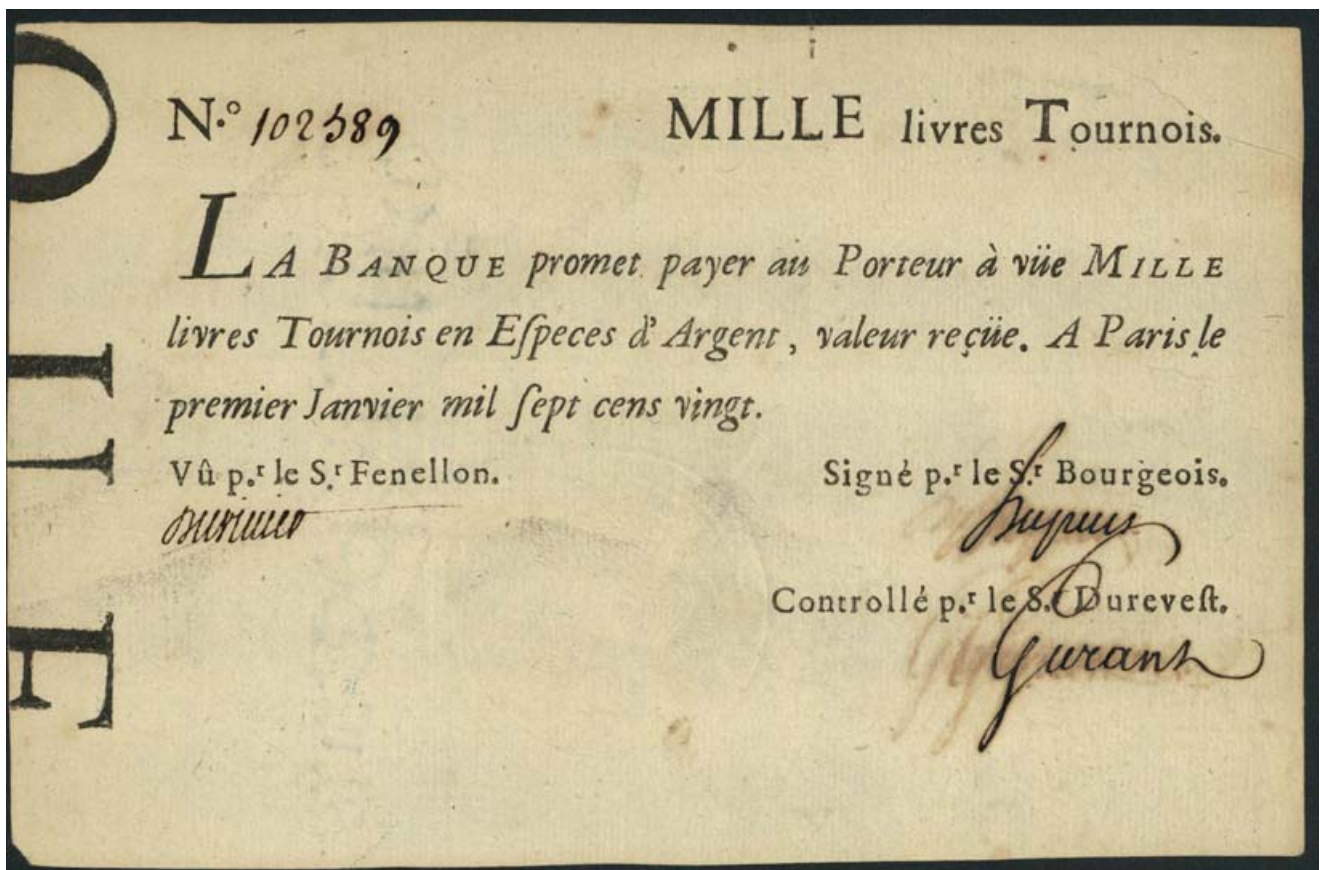 N.º 102589 MILLE livres Tournois.
LA BANQUE promet payer au Porteur à vüe MILLE
livres Tournois en Eſpeces d'Argent, valeur reçüe. A Paris le
premier Janvier mil ſept cens vingt.
Vû p.r le S.r Fenellon. Signé p.r le S.r Bourgeois.
Controllé p.r le S.r Dureveſt.
Gurant